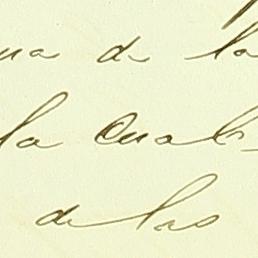 na de la
la Cual
de las